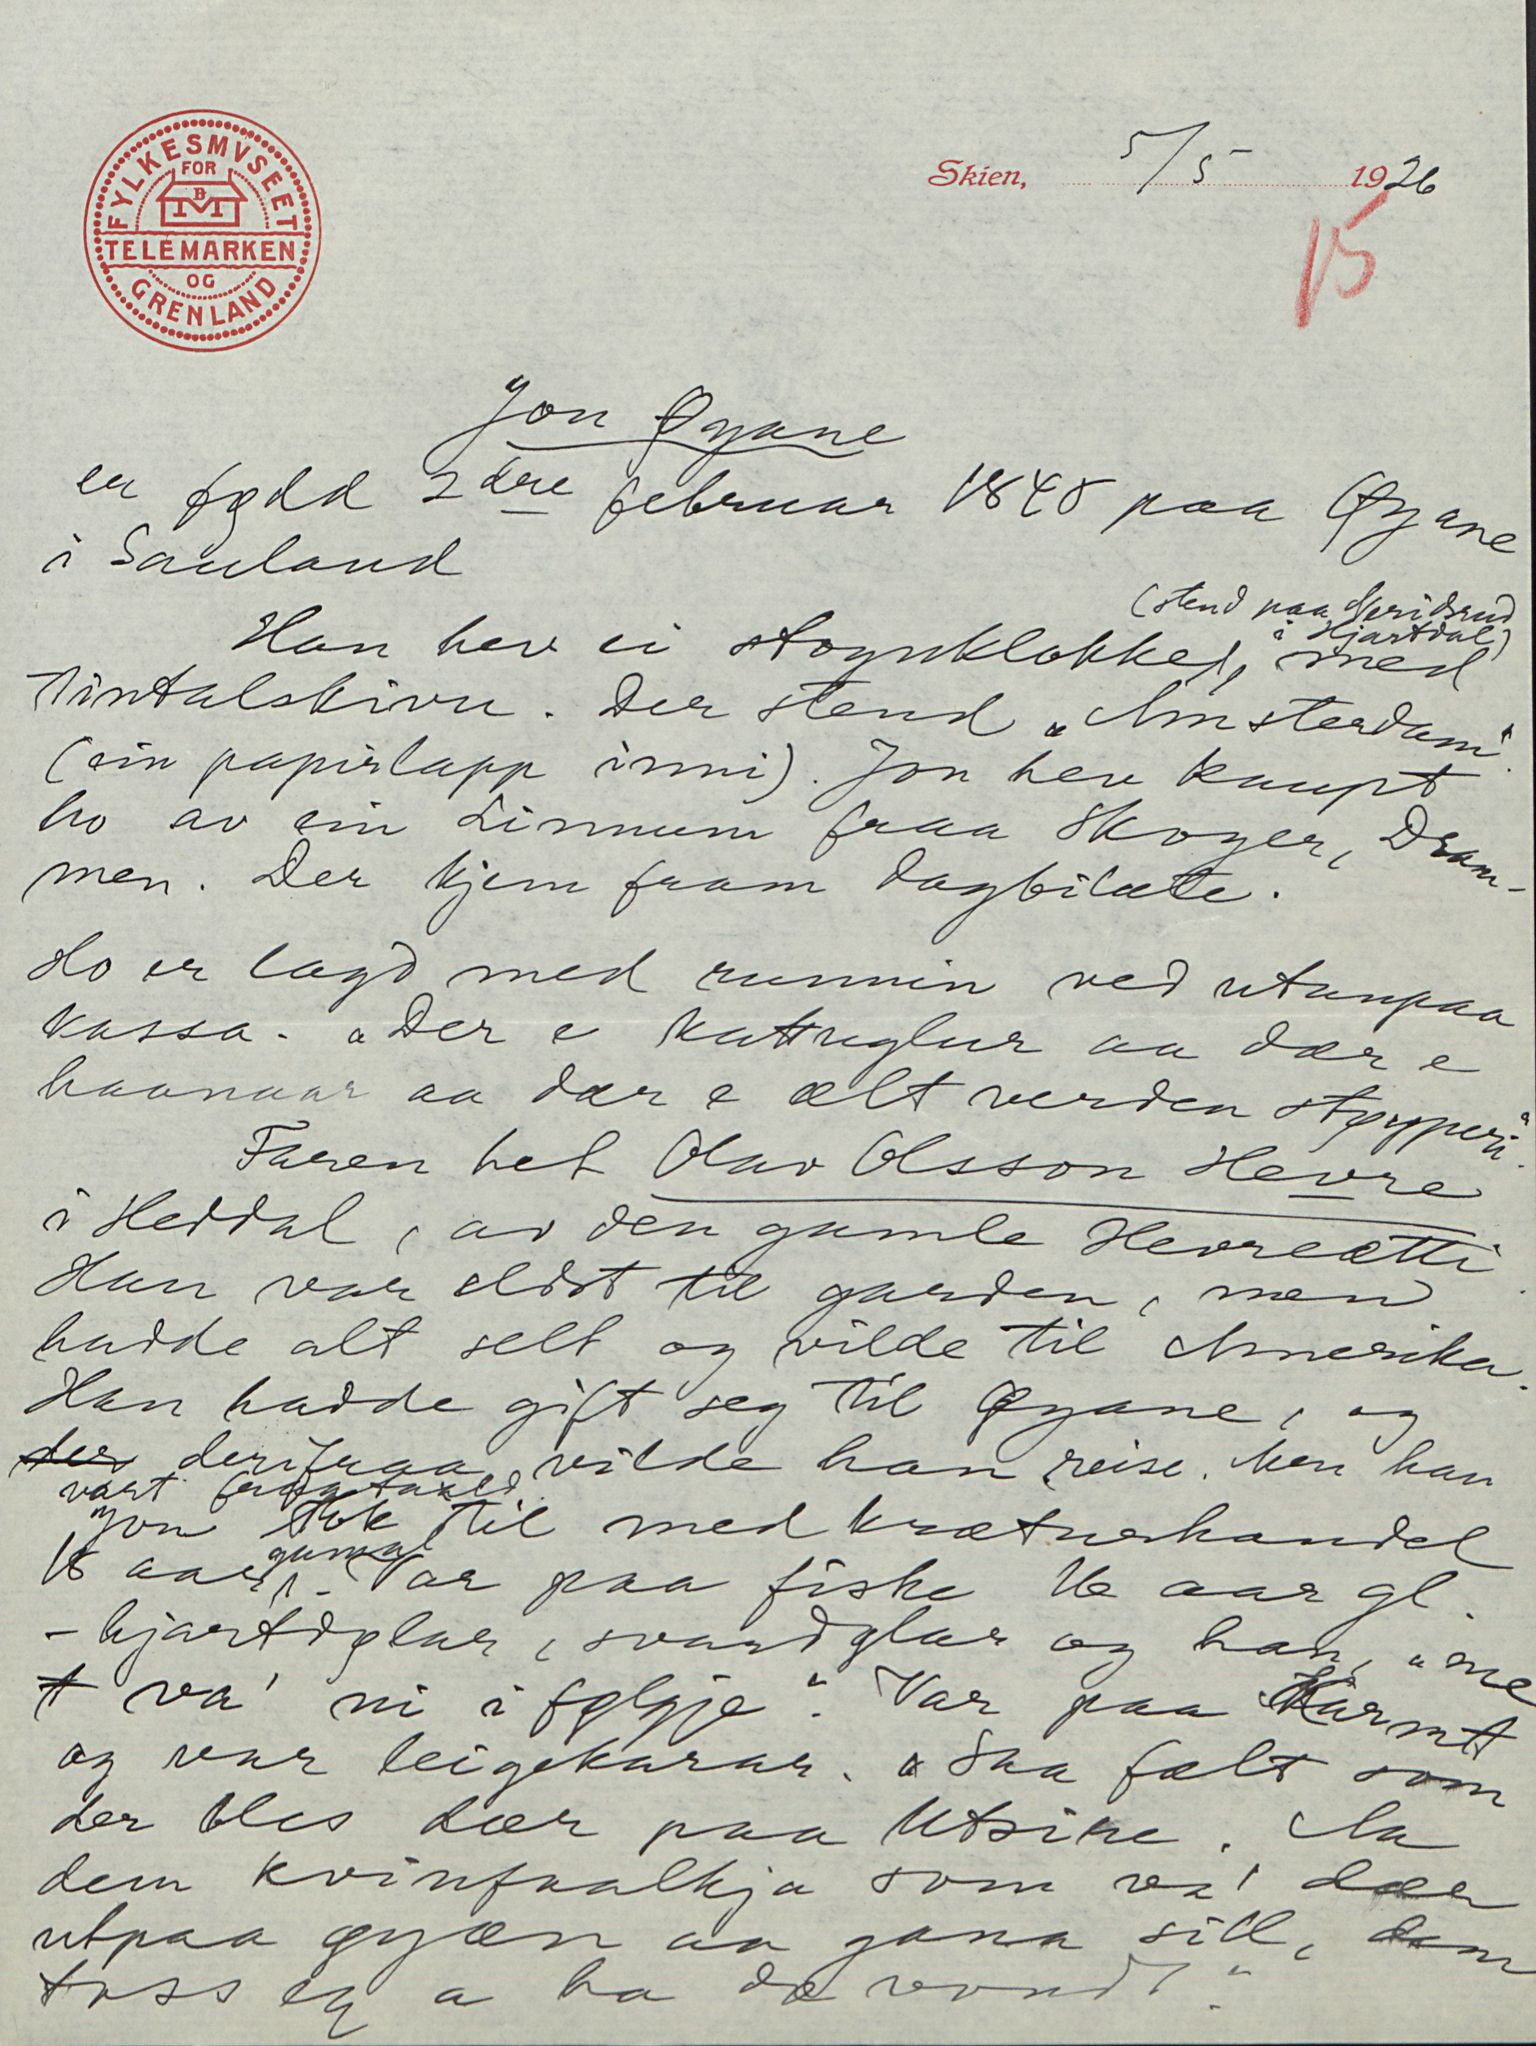 FYLKESMVSEET
FOR
BM
TELEMARKEN
OG
GRENLAND
Skien, 5/5 1926
15
Jon Øyane
er fødd 2dre februar 1848 paa Øyane
i Sauland
(stend paa
i Hjartdal)
Han hev ei stogoklokke, med
tintalskivu. Der stend "Amsterdam".
(ein papirlapp inni). Jon hev kaupt
ho av ein Linnum fraa Skoger, Dram-
men. Der kjem fram dagbilæte.
Ho er lagd med runnin ved utanpaa
kassa. "Der e kattuglur aa dær e
haanaar aa dær e ælt verden støyperi".
Faren het Olav Olsson Hevre
i Heddal, av den gamle Hevreætti.
Han var eldst til garden, men
hadde alt selt og vilde til Amerika.
Han hadde gift seg til Øyane, og
der derifraa vilde han reise. Men han
vart
Jon tok til med krøturhandel
18 aar gamal. Var paa fiske 16 aar gl.
- hjartdølar, svartdølar og han, "me
t va' ni i følgje". Var paa Karmt
og var leigekarar. "Saa fælt som
der bles dær paa Utsire. Aa
dem kvinfaalkja som va' dær
utpaa øyæn aa gana sill, dem
tøss eg a ha dæ vondt".